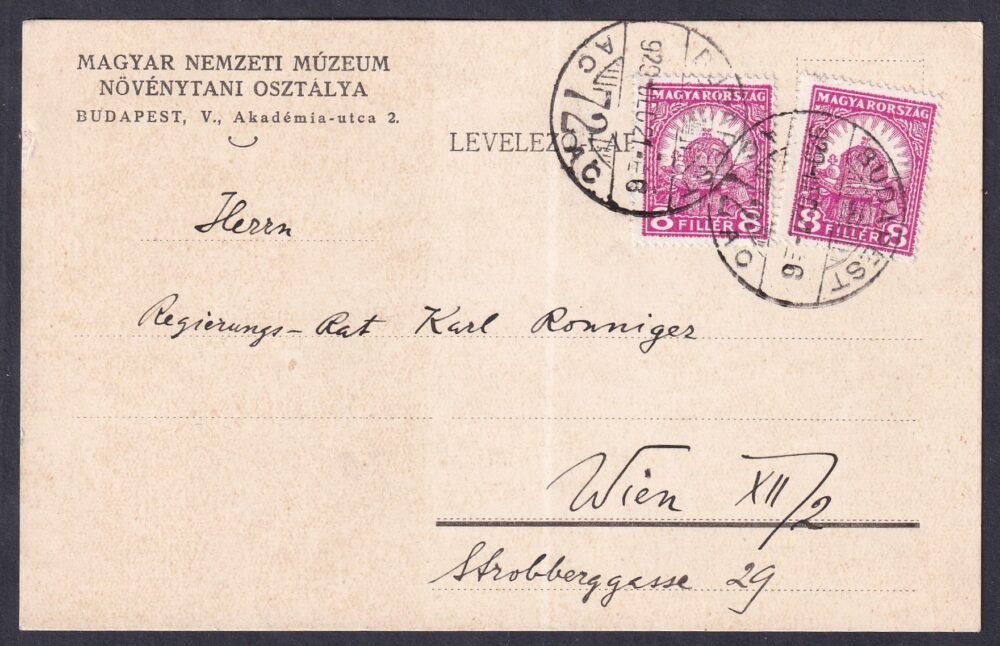 MAGYAR NEMZETI MÚZEUM
NÖVÉNYTANI OSZTÁLYA
BUDAPEST, V., Akadémia-utca 2.
LEVELEZŐ-LAP
MAGYARORSZÁG
8 FILLÉR 8
MAGYARORSZÁG
8 FILLÉR 8
72
BUDAPEST
72
Herrn
Regierungs-Rat Karl Ronniger
Wien XII/2
Strobberggasse 29